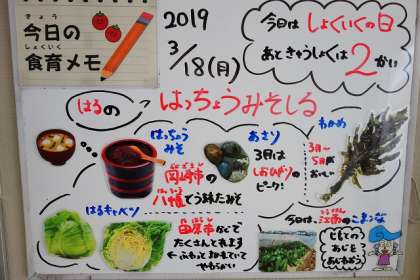 きょう
今日の
しょくいく
食育メモ
2019
3/18(月)
今日は しょくいくの日
あときゅうしょくは 2 かい
はるの はっちょうみそしる
はっちょう
みそ
岡崎市の
八幡
でうまれたみそ
あさり
3月は
しおひがりの
ピーク!
わかめ
3月~
5月が
はるキャベツ
田原市などで
たくさんとれます
ふわっと
やわらかい
今日は、江南のこまつな